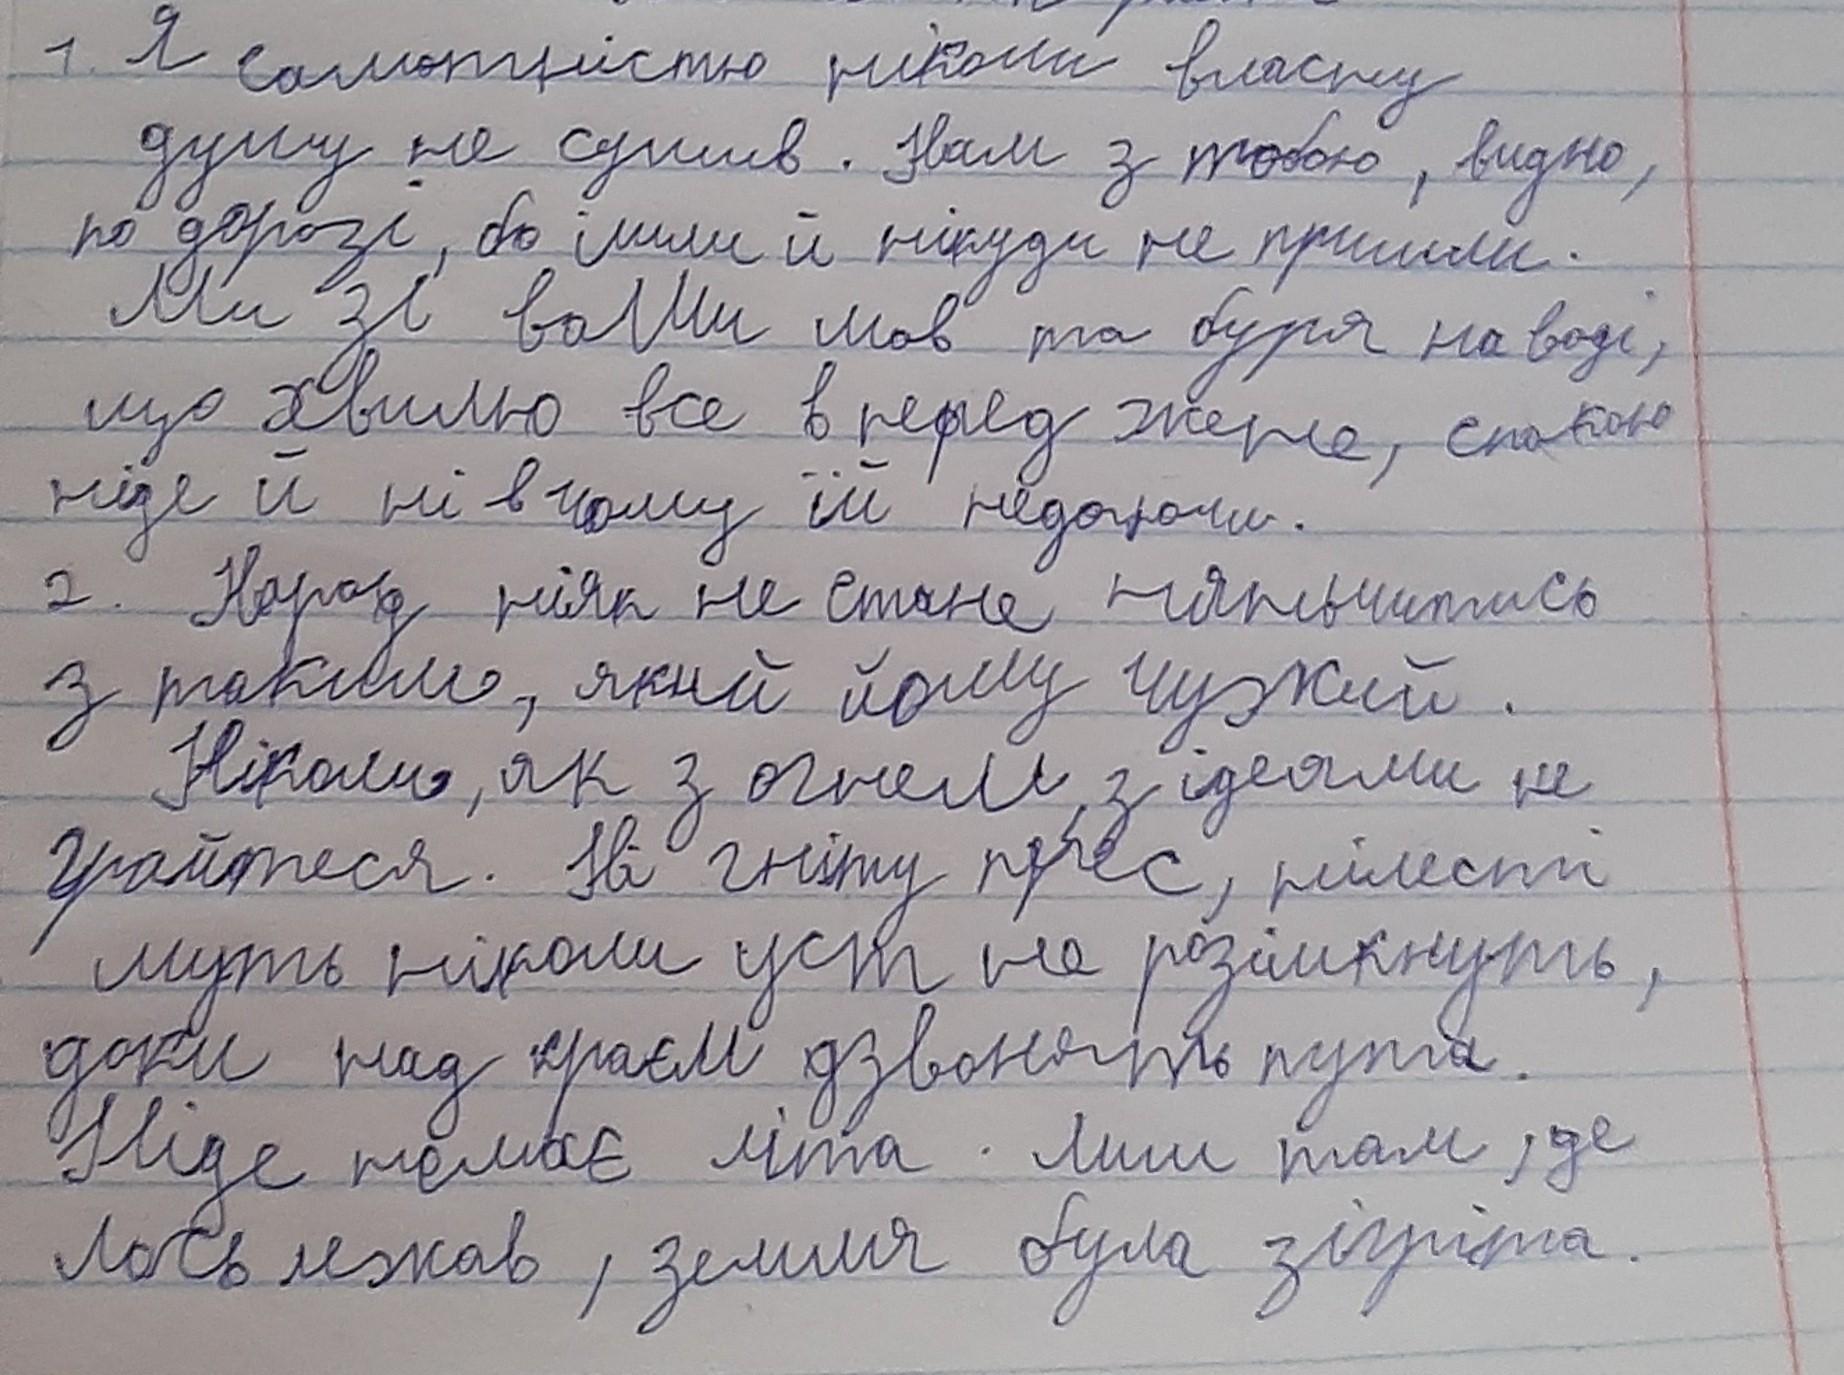 1. Я самотністю ніколи власну
душу не сушив. Нам з тобою, видно,
по дорозі, бо ішли й нікуди не прийшли.
Ми зі вами мов та буря на воді,
що хвилю все вперед жене, спокою
ніде й ні в чому їй недаючи.
2. Народ ніяк не стане няньчитись
з таким, який йому чужий.
Ніколи, як з огнем, з ідеями не
грайтеся. Ні гніту прес, ні лесті
муть ніколи уст не розімкнуть,
доки над краєм дзвонять пута.
Ніде немає літа. Лиш там, де
лось лежав, земля була зігріта.